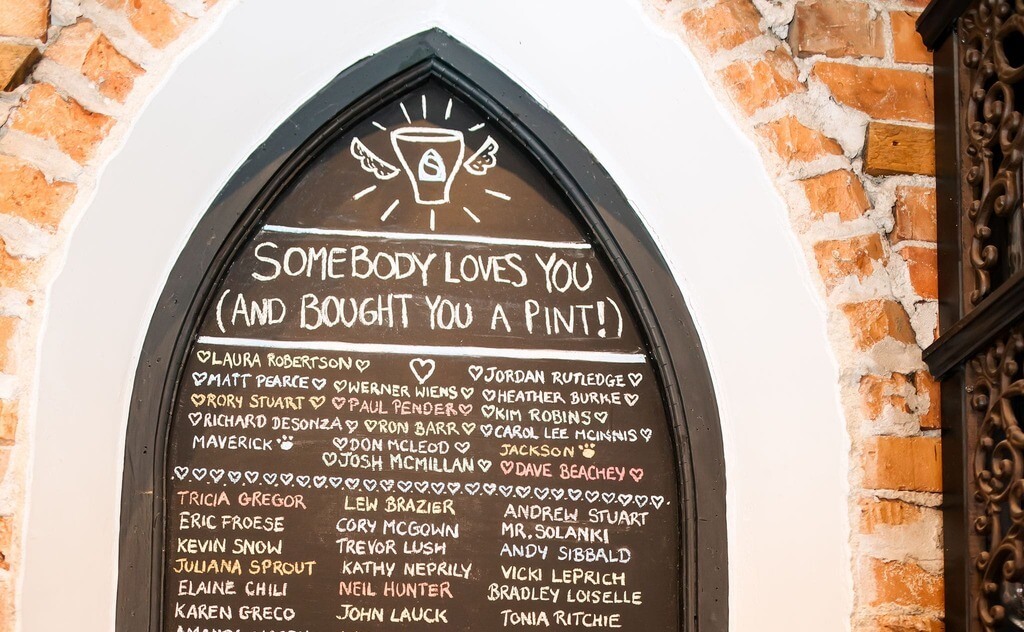 SOMEBODY LOVES YOU
(AND BOUGHT YOU A PINT!)
♡LAURA ROBERTSON♡
♡MATT PEARCE♡
♡RORY STUART♡
♡RICHARD DESONZA♡
MAVERICK
♡WERNER WIENS♡
♡PAUL PENDER♡
♡RON BARR♡
♡DON MCLEOD♡
♡JOSH MCMILLAN♡
♡JORDAN RUTLEDGE♡
♡HEATHER BURKE♡
♡KIM ROBINS♡
♡CAROL LEE MCINNIS♡
JACKSON
♡DAVE BEACHEY♡
TRICIA GREGOR
ERIC FROESE
KEVIN SNOW
JULIANA SPROUT
ELAINE CHILI
KAREN GRECO
LEW BRAZIER
CORY MCGOWN
TREVOR LUSH
KATHY NEPRILY
NEIL HUNTER
JOHN LAUCK
ANDREW STUART
MR. SOLANKI
ANDY SIBBALD
VICKI LEPRICH
BRADLEY LOISELLE
TONIA RITCHIE